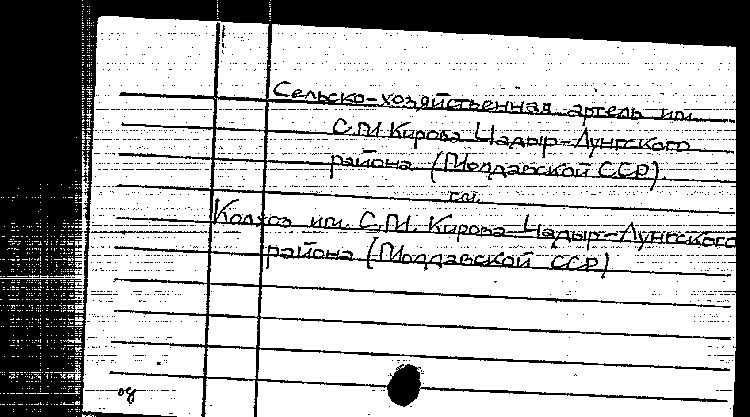 Сельско-хозяйственная артель им.
С.М. Кирова Чадыр-Лунгского
района (Молдавской ССР).
см.
Колхоз им. С.М. Кирова Чадыр-Лунгского
района (Молдавской ССР)